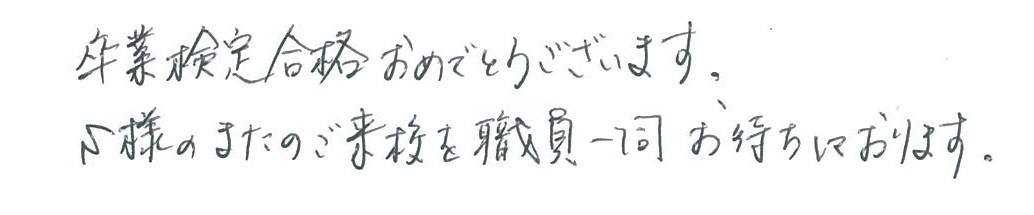 卒業検定合格おめでとうございます。
S様のまたのご来校を職員一同お待ちしております。